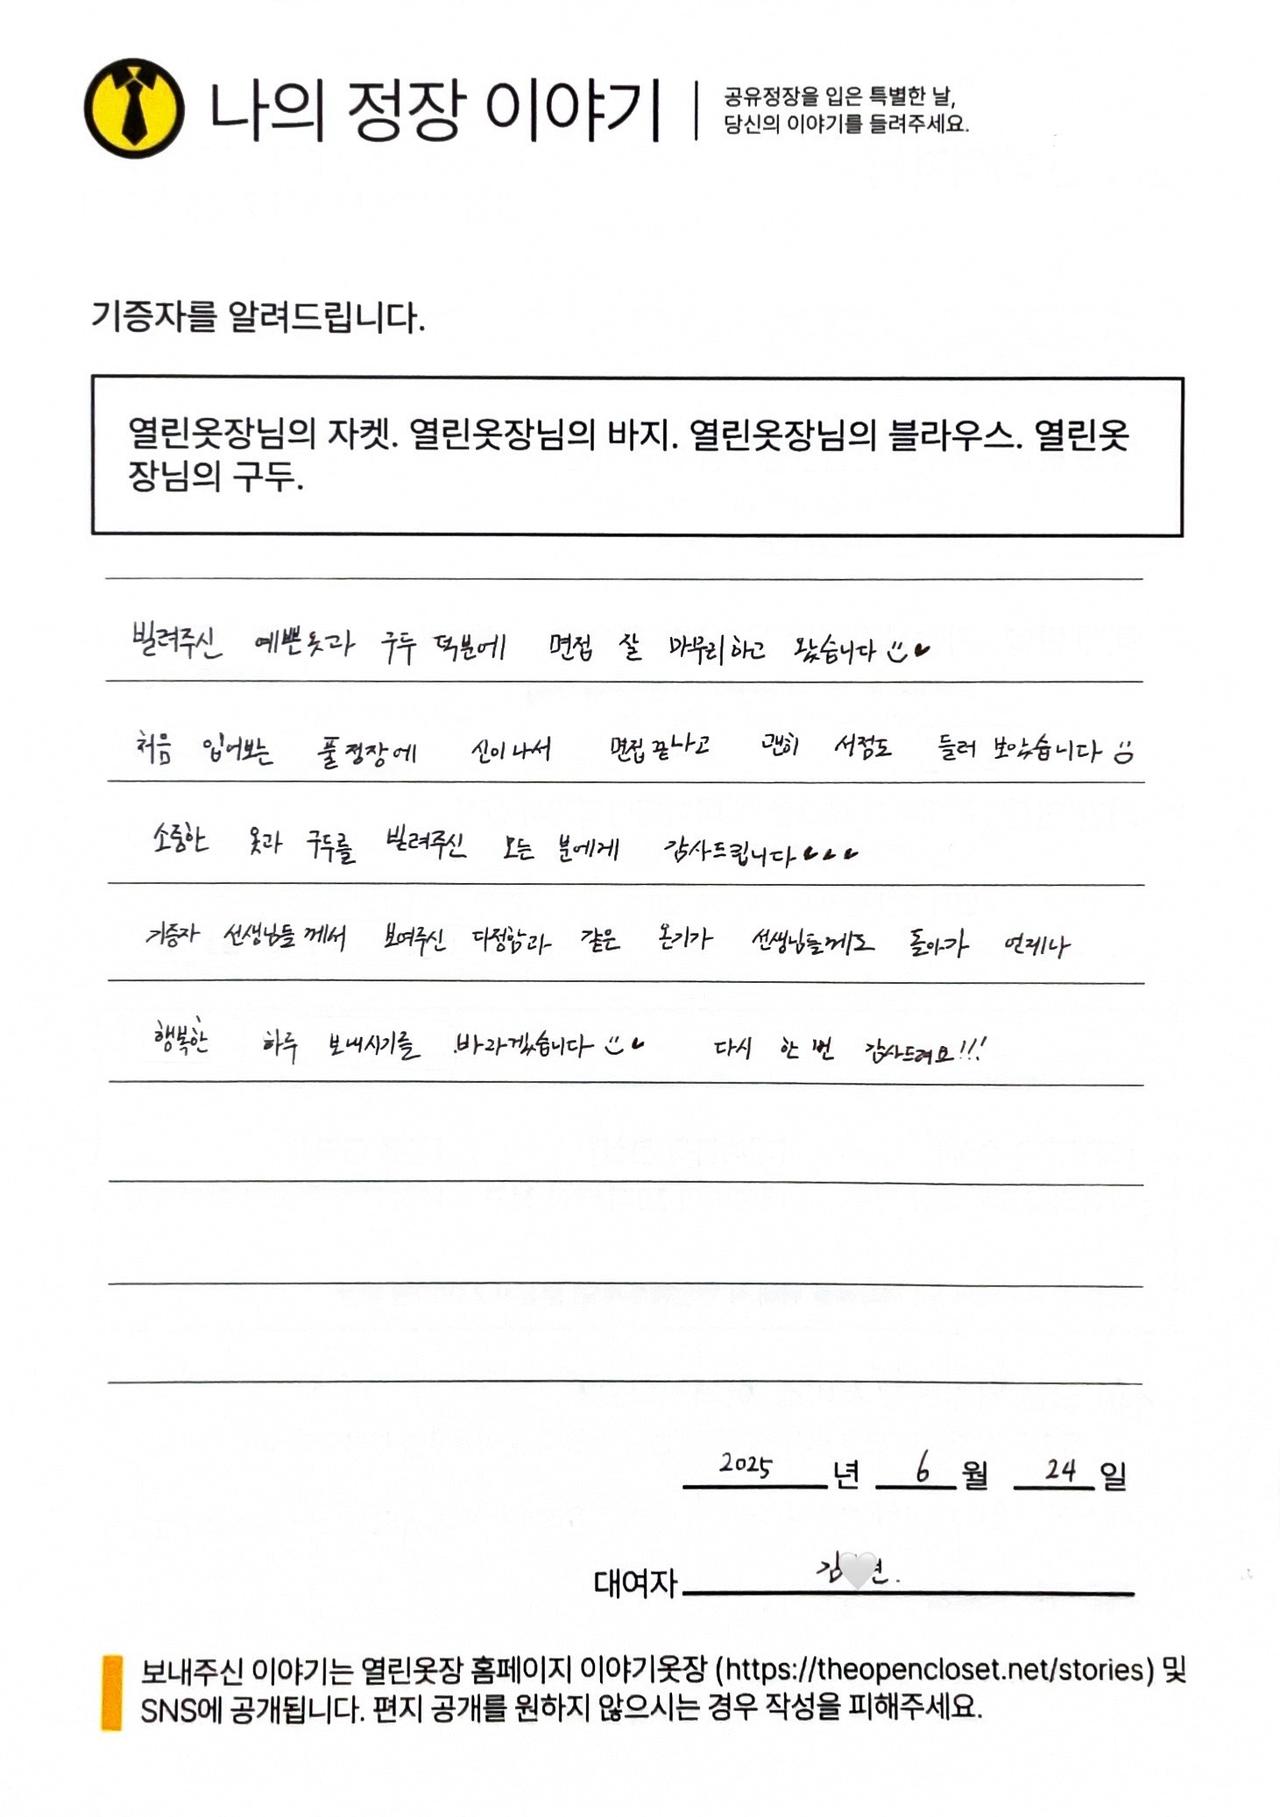 나의 정장 이야기
공유정장을 입은 특별한 날,
당신의 이야기를 들려주세요.
기증자를 알려드립니다.
열린옷장님의 자켓. 열린옷장님의 바지. 열린옷장님의 블라우스. 열린옷
장님의 구두.
빌려주신 예쁜옷과 구두 덕분에 면접 잘 마무리하고 왔습니다
처음 입어보는 풀정장에 신이나서 면접끝나고 괜히 서점도 들러 보았습니다
소중한 옷과 구두를 빌려주신 모든 분에게 감사드립니다
기증자 선생님들께서 보여주신 다정함과 같은 온기가 선생님들께도 돌아가 언제나
행복한 하루 보내시기를 바라겠습니다 다시 한 번 감사드려요!!!
2025 년 6 월 24 일
대여자 김 현.
보내주신 이야기는 열린옷장 홈페이지 이야기옷장 (https://theopencloset.net/stories) 및
SNS에 공개됩니다. 편지 공개를 원하지 않으시는 경우 작성을 피해주세요.